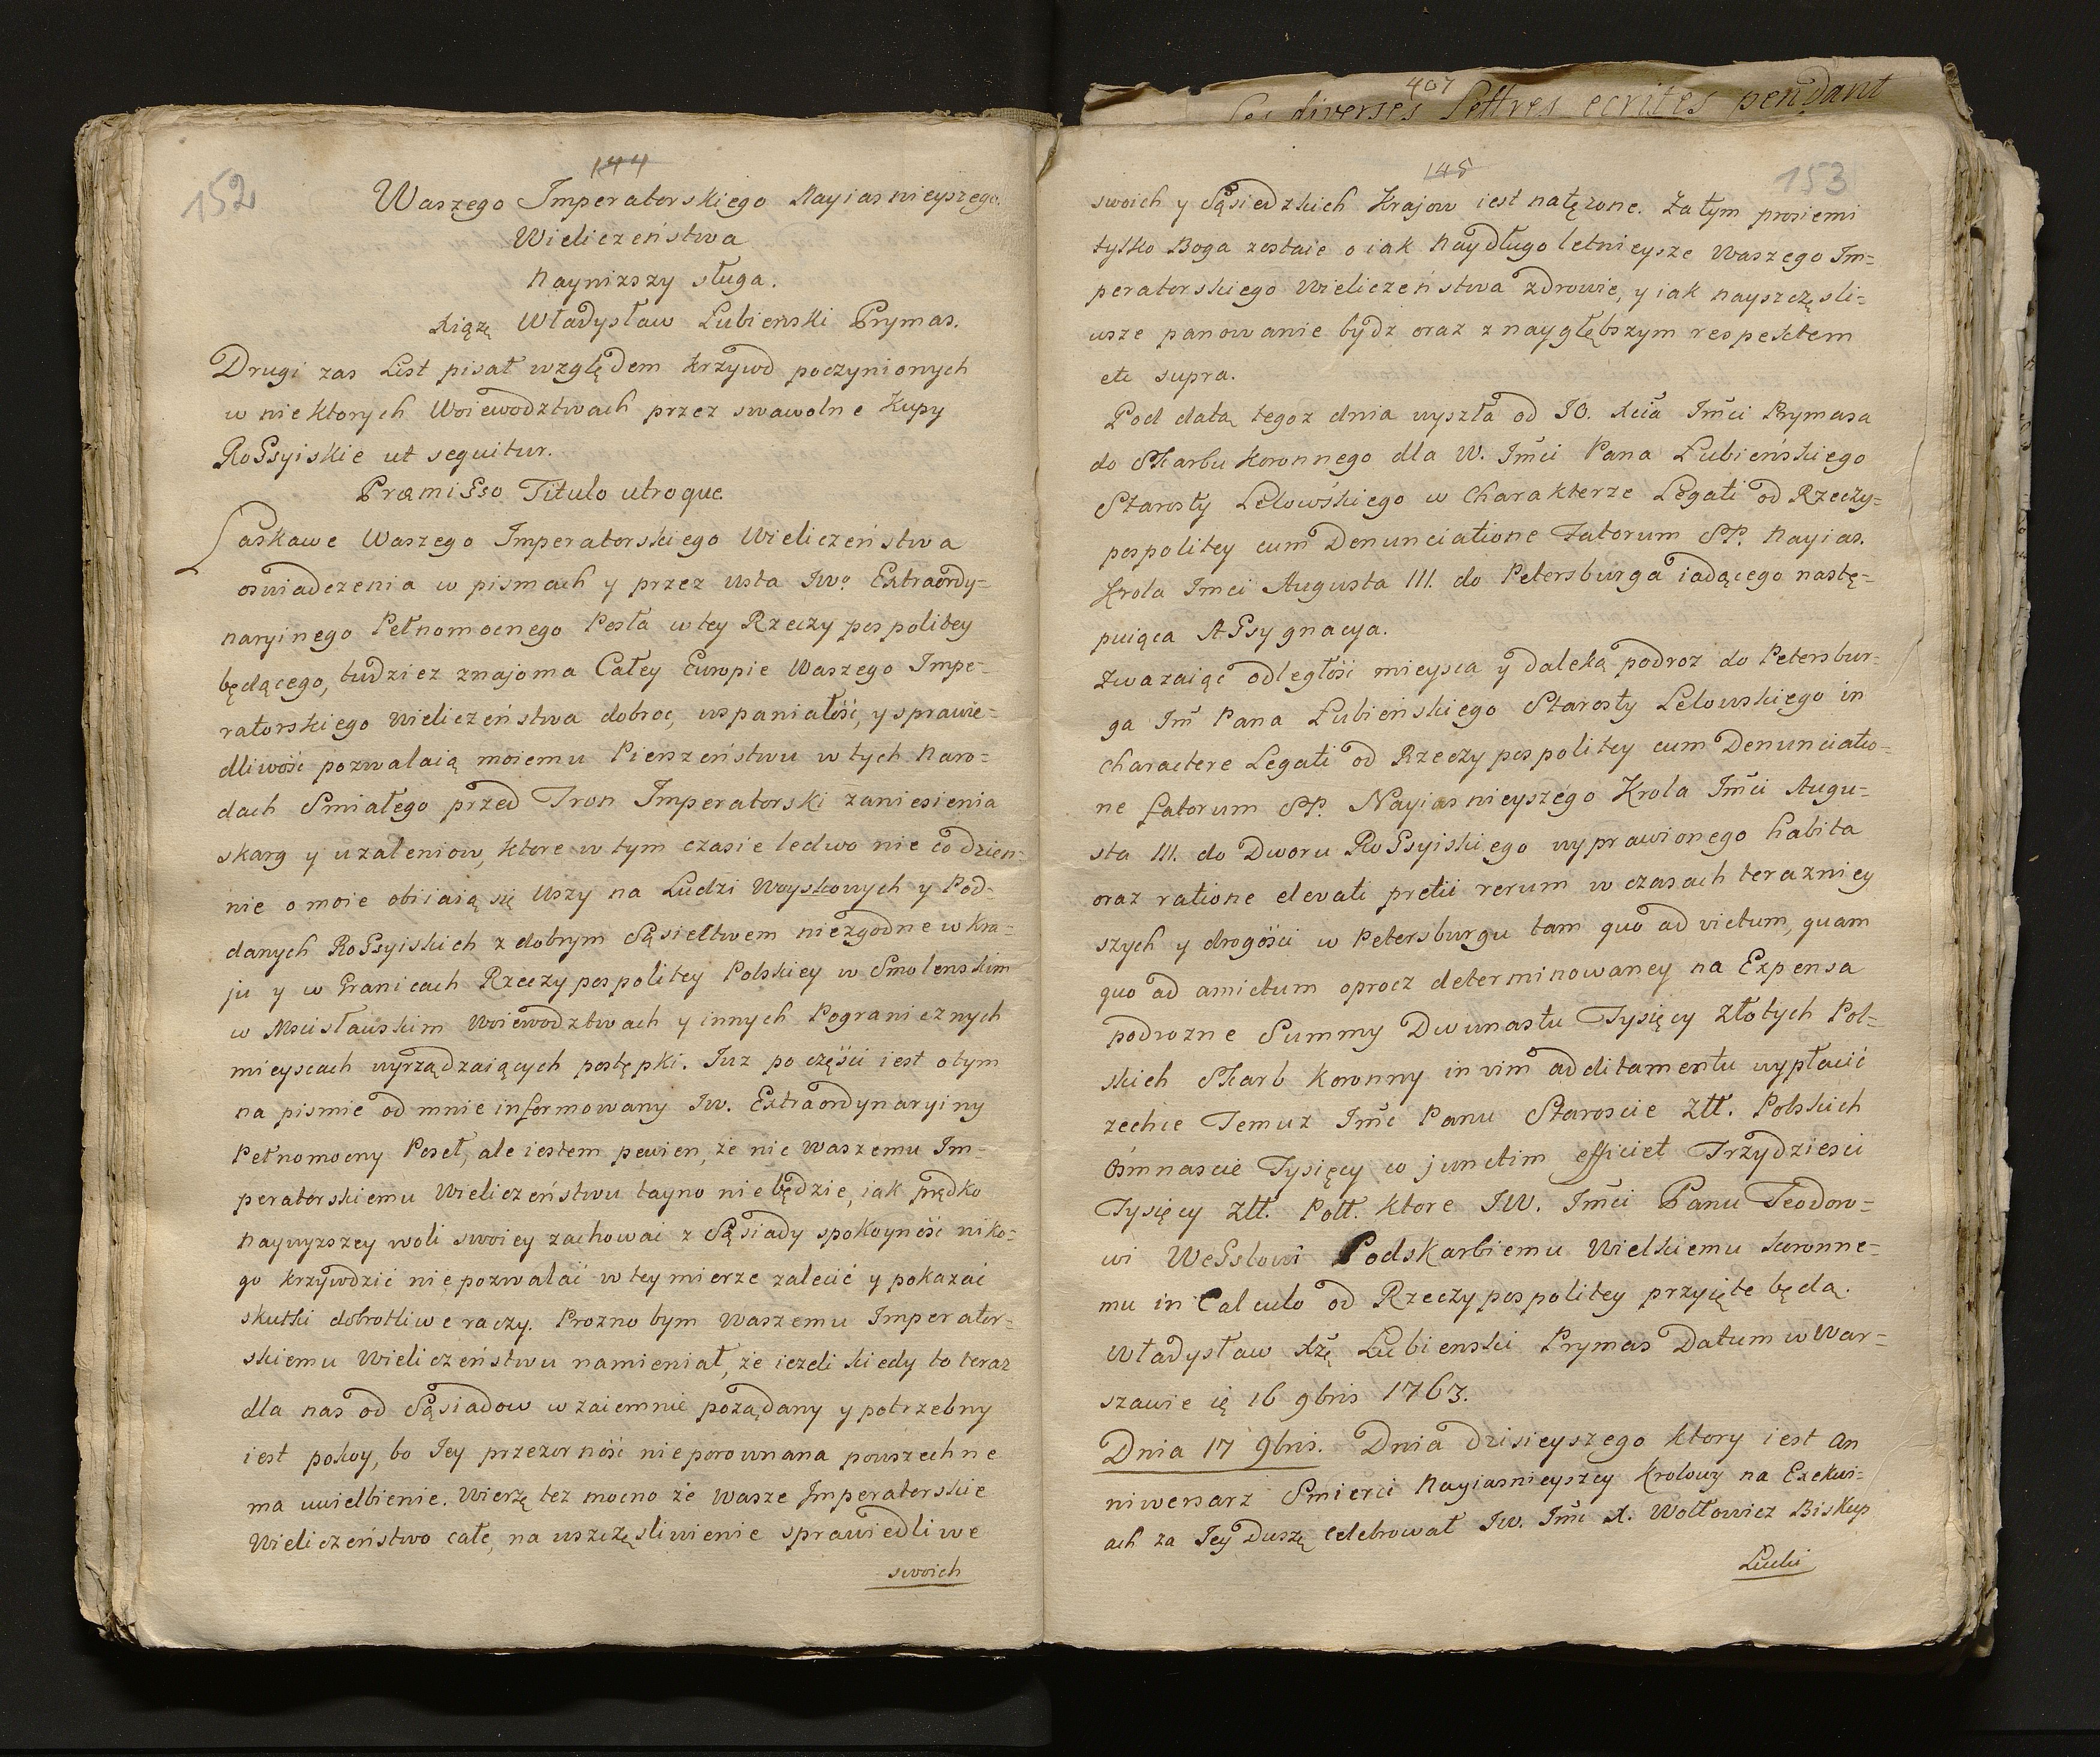 144
152
Waszego Imperatorskiego Nayiasnieyszego
Wieliczeństwa
Nayniższy sługa.
Xiążę Władysław Łubieński Prymas.
Drugi zas List pisał względem krzywd poczynionych
w niektorych Woiewodztwach przez swawolne Kupy
Rossyiskie ut sequitur.
Præmisso Titulo utroque
Łaskawe Waszego Imperatorskiego Wieliczeństwa
oswiadczenia w pismach y przez usta Jwo. Extraordy-
naryinego Pełnomocnego Posła w tey Rzeczy pospolitey
będącego, tudziez znajoma Całey Europie Waszego Impe-
ratorskiego Wieliczeństwa dobroc, wspaniałość, y sprawie-
dliwość pozwalaią moiemu Pierszeństwu w tych Naro-
dach Smiałego przed Tron Imperatorski zaniesienia
skarg y uzaleniow, ktore w tym czasie ledwo nie codzien-
nie o moie obiiaią się Uszy na Ludzi Woyskowych y Pod-
danych Rossyiskich z dobrym Sąsiectwem niezgodne w Kra-
ju y w Granicach Rzeczy pospolitey Polskiey w Smolenskim
w Mscisławskim Woiewodztwach y innych Pogranicznych
mieyscach wyrządzaiących postępki. Juz po części iest o tym
na pismie od mnie informowany Jw. Extraordynaryiny
Pełnomocny Poseł, ale iestem pewien, że nic Waszemu Im-
peratorskiemu Wieliczeństwu tayno niebędzie, iak prędko
naywyzszey woli swoiey zachować z Sąsiady spokoyność niko-
go krzywdzić niepozwalać w tey mierze zalecić y pokazać
skutki dobrotliwe raczy. Prozno bym Waszemu Imperator-
skiemu Wieliczeństwu namieniał, że iezeli kiedy to teraz
dla nas od Sąsiadow wzaiemnie poządany y potrzebny
iest pokoy, bo Jey przezorność nieporownana powszechne
ma uwielbienie. Wierzę tez mocno że Wasze Imperatorskie
Wieliczeństwo całe, na uszczęsliwienie sprawiedliwe
swoich
407
diverses Lettres ecrites pendant
145
153
swoich y Sąsiedzkich Krajow iest natęzone. Zatym prosiemi
tylko Boga zostaie o iak naydługo letnieysze Waszego Im-
peratorskiego Wieliczeństwa zdrowie, y iak nayszczęsli-
wsze panowanie bydz oraz z naygłębszym respektem
etc supra.
Pod datą tegoz dnia wyszła od JO. Xcia Jmci Prymasa
do Skarbu koronnego dla W. Jmci Pana Łubieńskiego
Starosty Lelowskiego w Charakterze Legati od Rzeczy-
pospolitey cum Denunciatione Fatorum SP. Nayias.
Krola Jmci Augusta III. do Petersburga iadącego nastę-
puiąca Assygnacya.
Zwazaiąc odległość mieysca y daleką podroz do Petersbur-
ga Jm Pana Łubieńskiego Starosty Lelowskiego in
Charactere Legati od Rzeczy pospolitey cum Denunciatio-
ne fatorum SP. Nayiasnieyszego Krola Jmci Augu-
sta III. do Dworu Rossyiskiego wyprawionego habita
oraz ratione elevati pretii rerum w czasach terazniey
szych y drogości w Petersburgu tam quo ad victum, quam
quo ad amictum oprocz determinowaney na Expensa
podrozne Summy Dwunastu Tysięcy Złotych Pol-
skich Skarb koronny in vim additamentu wypłacić
zechce Temuz Jmc Panu Staroscie Złł. Polskich
Ośmnascie Tysięcy co junctim efficiet Trzydziesci
Tysięcy złł. Poll. ktore JW. Jmci Panu Teodoro-
wi Wesslowi Podskarbiemu Wielkiemu koronne-
mu in Calculo od Rzeczy pospolitey przyięte będą.
Władysław Xżę Łubienski Prymas Datum w War-
szawie ię 16 9bris 1763.
Dnia 17 9bris. Dnia dzisieyszego ktory iest An
niwersarz Smierci Nayiasnieyszey Krolowy na Exekwi-
ach za Jey Duszę Celebrował Jw. Jmc X. Wołłowicz Biskup
Lucki